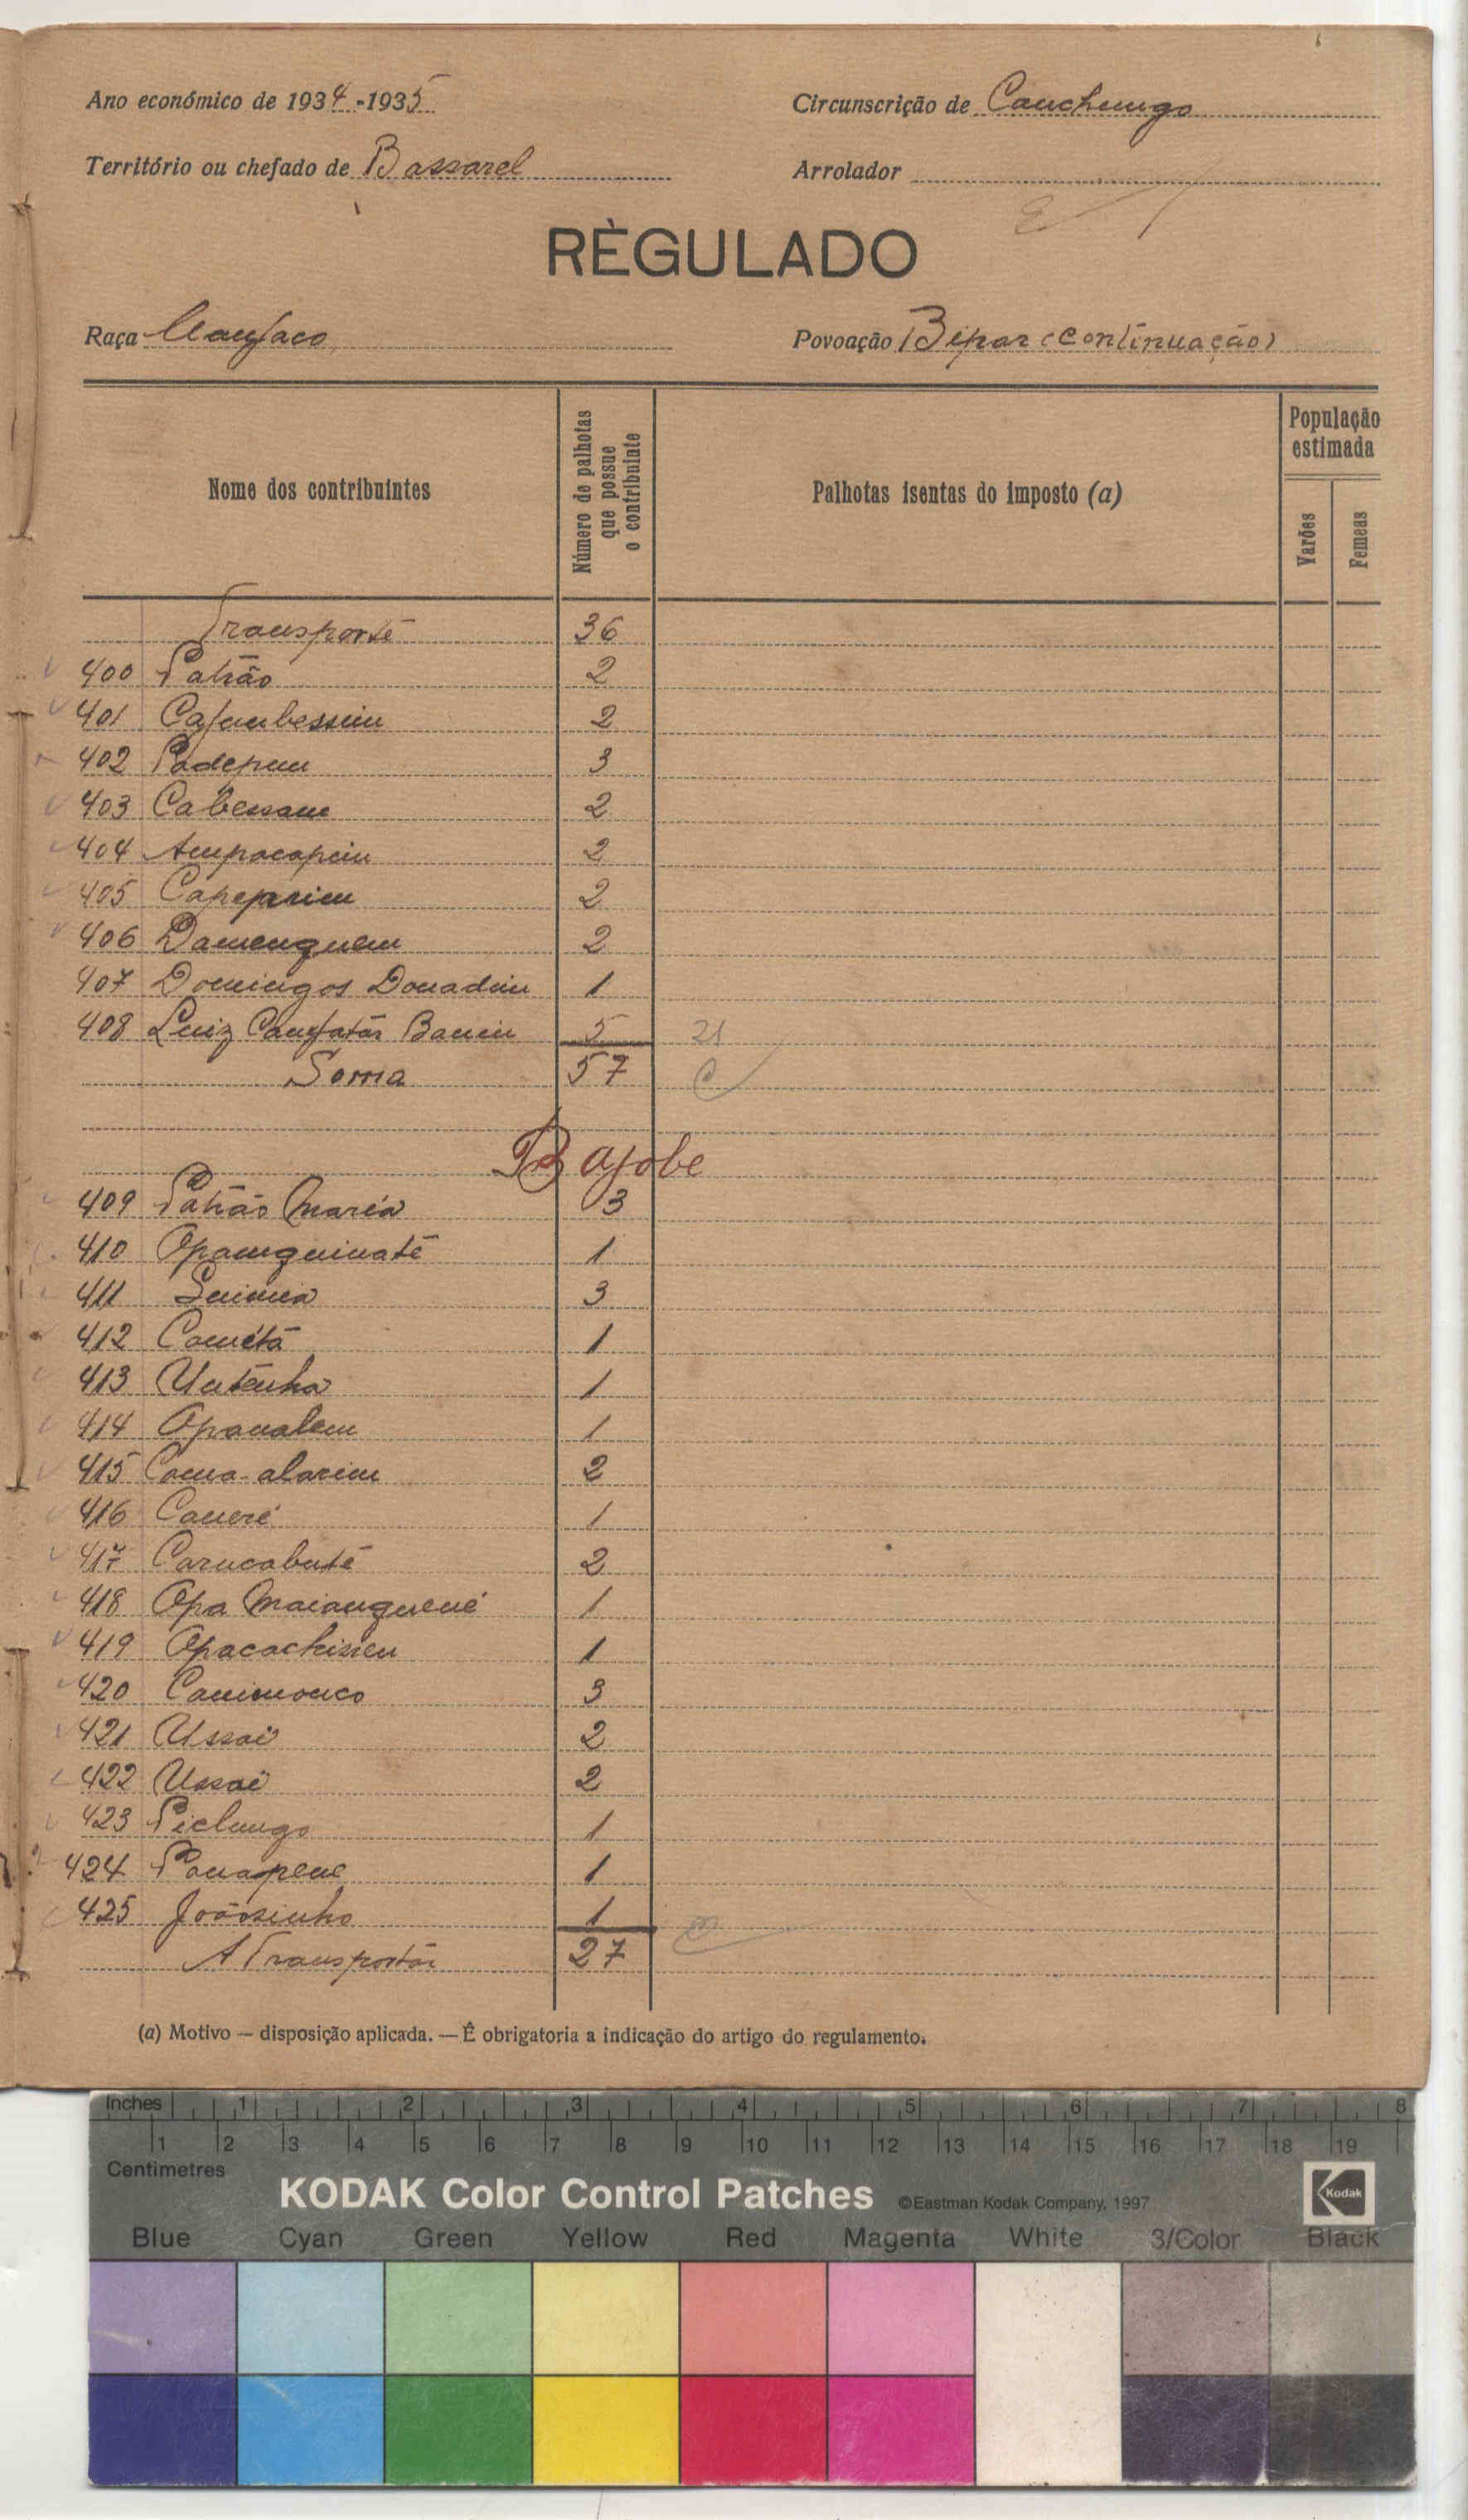 Ano económico de 1934-1935
Circunscrição de Canchungo
Território ou chefado de Bassarel
Arrolador
RÈGULADO
Raça Manjaco
Povoação Bipar (continuação)
Nome dos contribuintes
Número de palhotas que possue o contribuinte
Palhotas isentas do imposto (a)
População estimada
Varões
Femeas
Transporte 36
400 Patrão 2
401 Cajambessim 2
402 Padepum 3
403 Cabessam 2
404 Ampacapim 2
405 Capeprim 2
406 Damenguem 2
407 Domingos Donadim 1
408 Luiz Canfatár 5 21
Soma 57
Bajobe
409 Patrão Maria 3
410 Opamguinaté 1
411 3
412 Cométá 1
413 Untenha 1
414 Opanalem 1
415 Coma-alarim 2
416 Caneré 1
417 Carucabuté 2
418 Opa Maianguené 1
419 Apacachissem 1
420 Canimonco 3
421 Ussai 2
422 Ussai 2
423 Piclungo 1
424 Panapene 1
425 Joãosinho 1
A Transportár 27
(a) Motivo — disposição aplicada. — Ê obrigatoria a indicação do artigo do regulamento.
Inches 1 2 3 4 5 6 7 8
1 2 3 4 5 6 7 8 9 10 11 12 13 14 15 16 17 18 19
Centimetres
KODAK Color Control Patches ©Eastman Kodak Company, 1997 Kodak
Blue Cyan Green Yellow Red Magenta White 3/Color Black